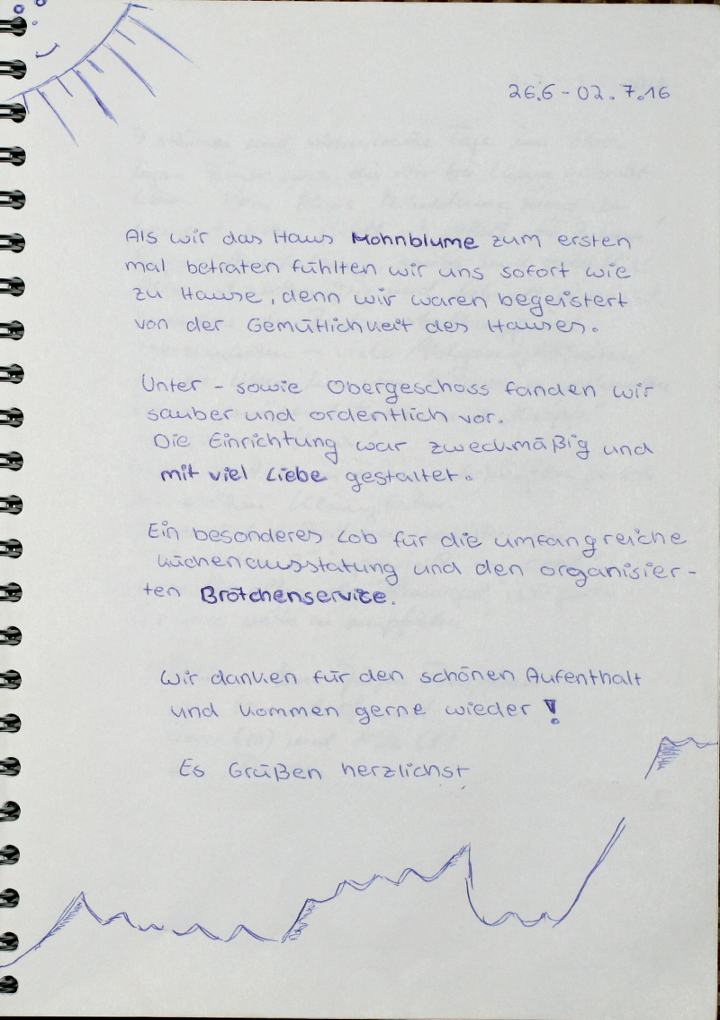 26.6 - 02.7.16
Als wir das Haus Mohnblume zum ersten
mal betraten fühlten wir uns sofort wie
zu Hause, denn wir waren begeistert
von der Gemütlichkeit des Hauses.
Unter - sowie Obergeschoss fanden wir
sauber und ordentlich vor.
Die Einrichtung war zweckmäßig und
mit viel Liebe gestaltet.
Ein besonderes Lob für die umfangreiche
Küchenausstattung und den organisier-
ten Brötchenservice.
Wir danken für den schönen Aufenthalt
und kommen gerne wieder!
Es Grüßen herzlichst